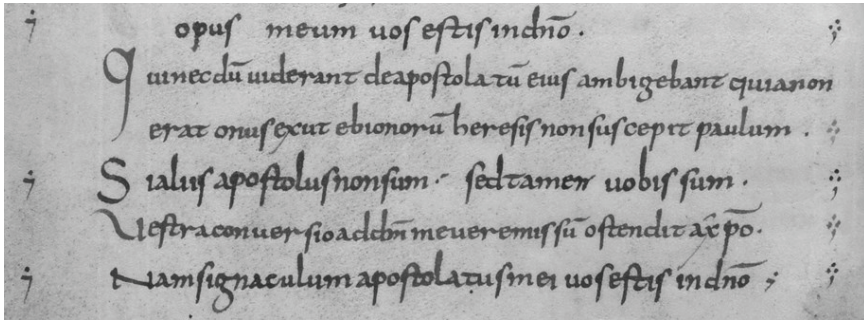 opus meum uos estis in dn̄o.
Qui necdū uiderant de apostolatū eius ambigebant quia non
erat onus ex ut ebionorū heresis non suscepit paulum.
Si aliis apostolus non sum. sed tamen uobis sum.
Uestra conuersio ad dn̄m me uere missū ostendit a xp̄o.
Nam signaculum apostolatus mei uos estis in dn̄o;